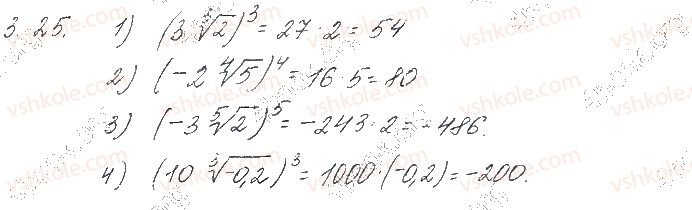 3.25. 1) (3∛2)³ = 27·2 = 54
2) (-2∜5)⁴ = 16·5 = 80
3) (-3⁵√2)⁵ = -243·2 = -486.
4) (10∛-0,2)³ = 1000·(-0,2) = -200.
vshkole.com